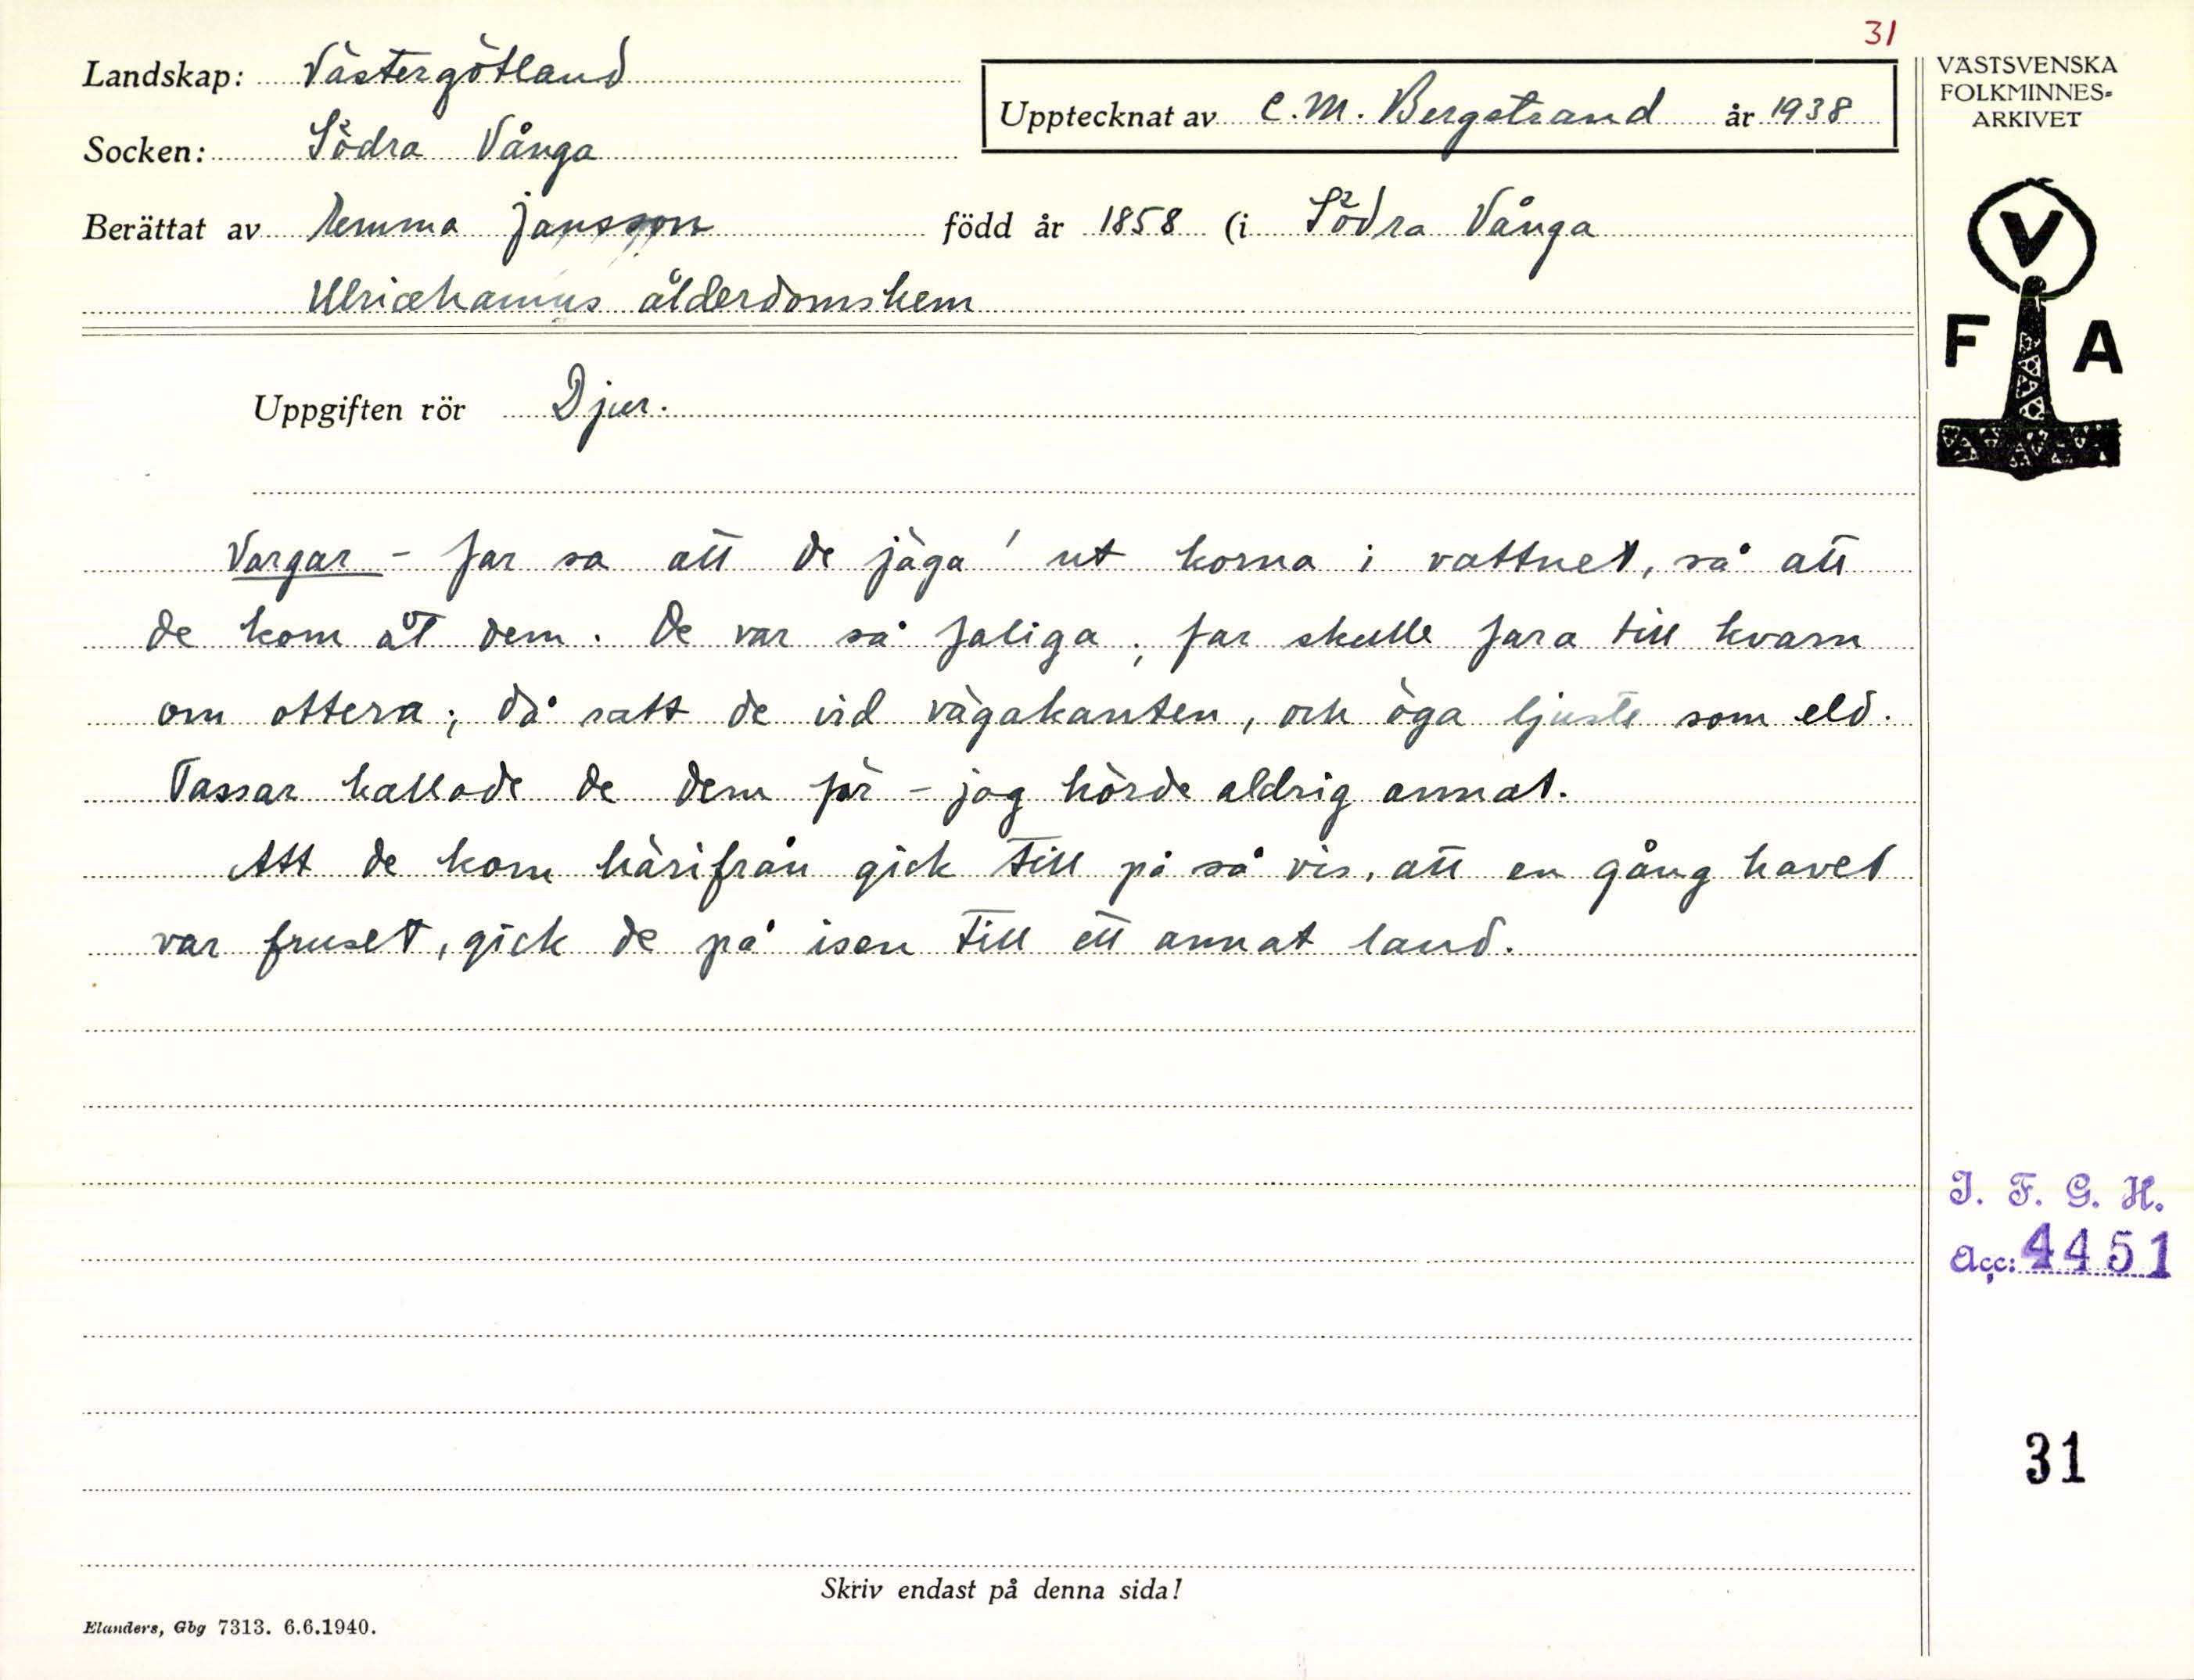 31
Landskap: Västergötland
Upptecknat av C. M. Bergstrand år 1938
VÄSTSVENSKA
FOLKMINNES-
ARKIVET
Socken: Södra Vånga
Berättat av Hemma Jansson född år 1858 (i Södra Vånga
Ulricehamns ålderdomshem
V
F A
Uppgiften rör Djur.
Vargar - far sa att de jäga' ut korna i vattnet, så att
de kom åt dem. De var så faliga; far skulle fara till kvarn
om ottera; då satt de vid vägakanten, och öga ljuste som eld.
Tassar kallade de dem för - jag hörde aldrig annat.
Att de kom härifrån gick till på så vis, att en gång havet
var fruset, gick de på isen till ett annat land.
I. F. G. H.
Acc: 4451
31
Skriv endast på denna sida!
Elanders, Gbg 7313. 6.6.1940.